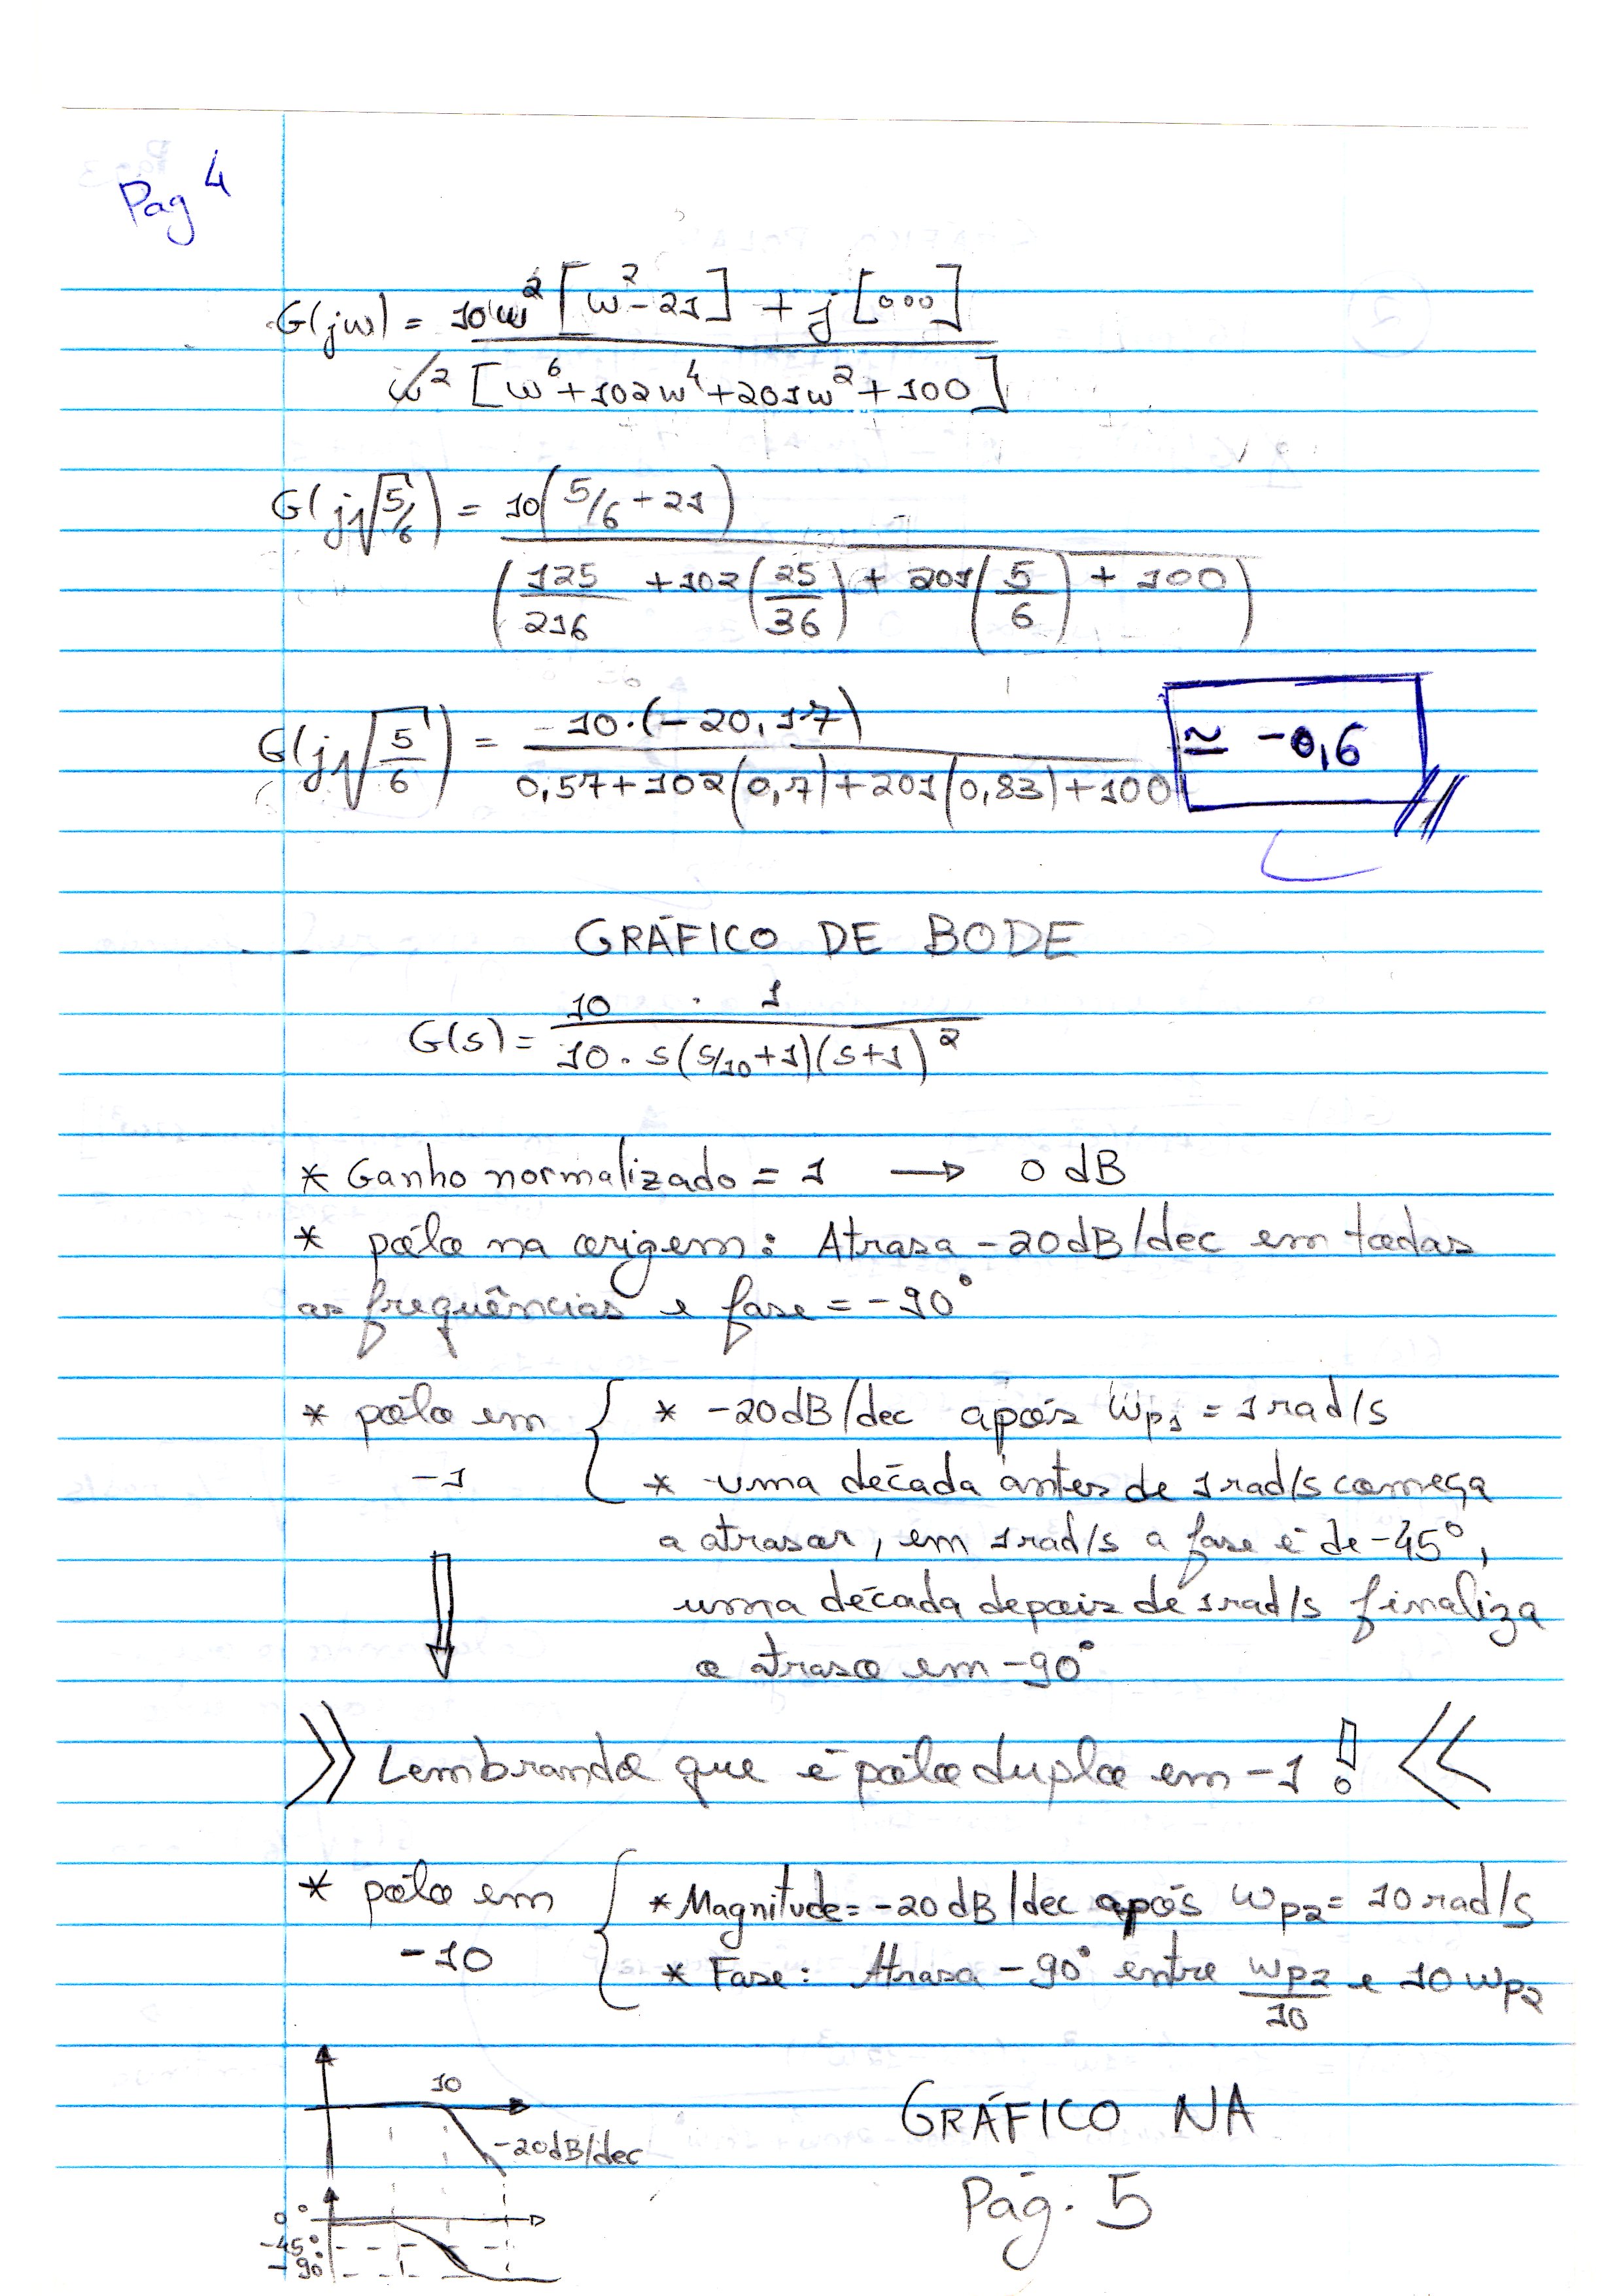 Pag 4
G(jw) = 10w² [w² - 21] + j[°°°]
w² [w⁶ + 102w⁴ + 201w² + 100]
G(j√5/6) = 10(5/6 + 21)
(125/216 + 102(25/36) + 201(5/6) + 100)
G(j√5/6) = -10.(-20,17)
0,57 + 102(0,7) + 201(0,83) + 100 ≃ -0,6
GRÁFICO DE BODE
G(s) = 10 . 1
10 . s(s/10+1)(s+1)²
* Ganho normalizado = 1 → 0 dB
* pólo na origem: Atrasa -20dB/dec em todas
as frequências e fase = -90°
* pólo em -1 { * -20dB/dec após Wp1 = 1 rad/s
* uma década antes de 1 rad/s começa
a atrasar, em 1 rad/s a fase é de -45°,
uma década depois de 1 rad/s finaliza
o atraso em -90°
>> Lembrando que é pólo duplo em -1 ! <<
* pólo em -10 { * Magnitude = -20 dB/dec após Wp2 = 10 rad/s
* Fase: Atrasa -90° entre wp2/10 e 10 wp2
10
-20dB/dec
0°
-45°
-90°
GRÁFICO NA
Pág. 5